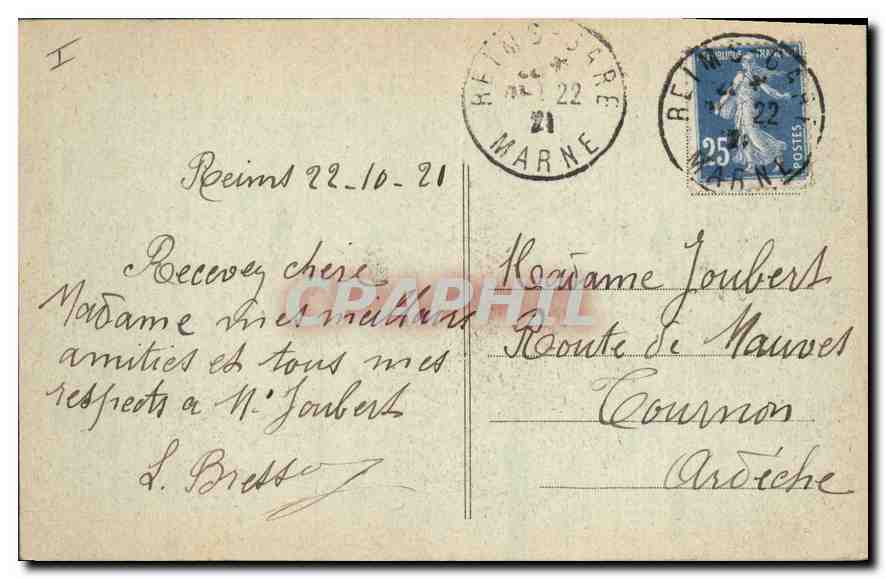 I
REIMS-GARE
22
21
MARNE
REIMS-GARE
22
MARNE
REPUBLIQUE FRANÇAISE
25
POSTES
Reims 22-10-21
Recevez chère
Madame mes meilleurs
amitiés et tous mes
respects a Mr Joubert
L. Bresson
Madame Joubert
Route de Mauves
Tournon
Ardèche
CPAPHIL